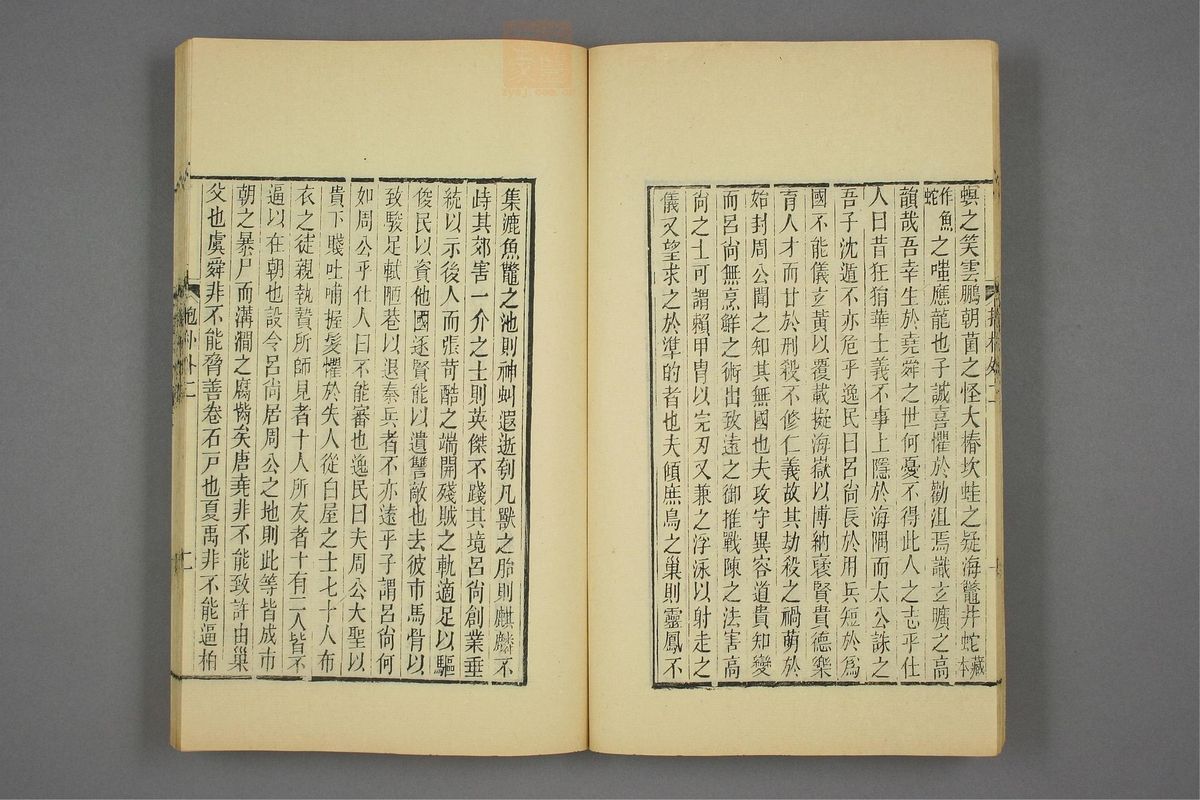 螟之笑雲鵬朝菌之怪大椿坎蛙之疑海鼈井蛇藏本
作魚蛇之嗤應龍也子誠喜懼於勸沮焉識玄曠之高
韻哉吾幸生於堯舜之世何憂不得此人之志乎仕
人曰昔狂狷華士義不事上隱於海隅而太公誅之
吾子沈遁不亦危乎逸民曰呂尙長於用兵短於爲
國不能儀玄黃以覆載擬海嶽以博納褒賢貴德樂
育人才而甘於刑殺不修仁義故其劫殺之禍萌於
始封周公聞之知其無國也夫攻守異容道貴知變
而呂尙無烹鮮之術出致遠之御推戰陳之法害高
尙之士可謂賴甲胄以完刃又兼之浮泳以射走之
儀又望求之於準的者也夫傾庶鳥之巢則靈鳳不
集漉魚鼈之池則神虬遐逝刳凡獸之胎則麒麟不
跱其郊害一介之士則英傑不踐其境呂尙創業垂
統以示後人而張苛酷之端開殘賊之軌適足以驅
俊民以資他國逐賢能以遺讐敵也去彼市馬骨以
致駿足軾陋巷以退秦兵者不亦遠乎子謂呂尙何
如周公乎仕人曰不能審也逸民曰夫周公大聖以
貴下賤吐哺握髮懼於失人從白屋之士七十人布
衣之徒親執贄所師見者十人所友者十有二人皆不
逼以在朝也設令呂尙居周公之地則此等皆成市
朝之暴尸而溝澗之腐胔矣唐堯非不能致許由巢
父也虞舜非不能脅善卷石戸也夏禹非不能逼柏
抱朴外二